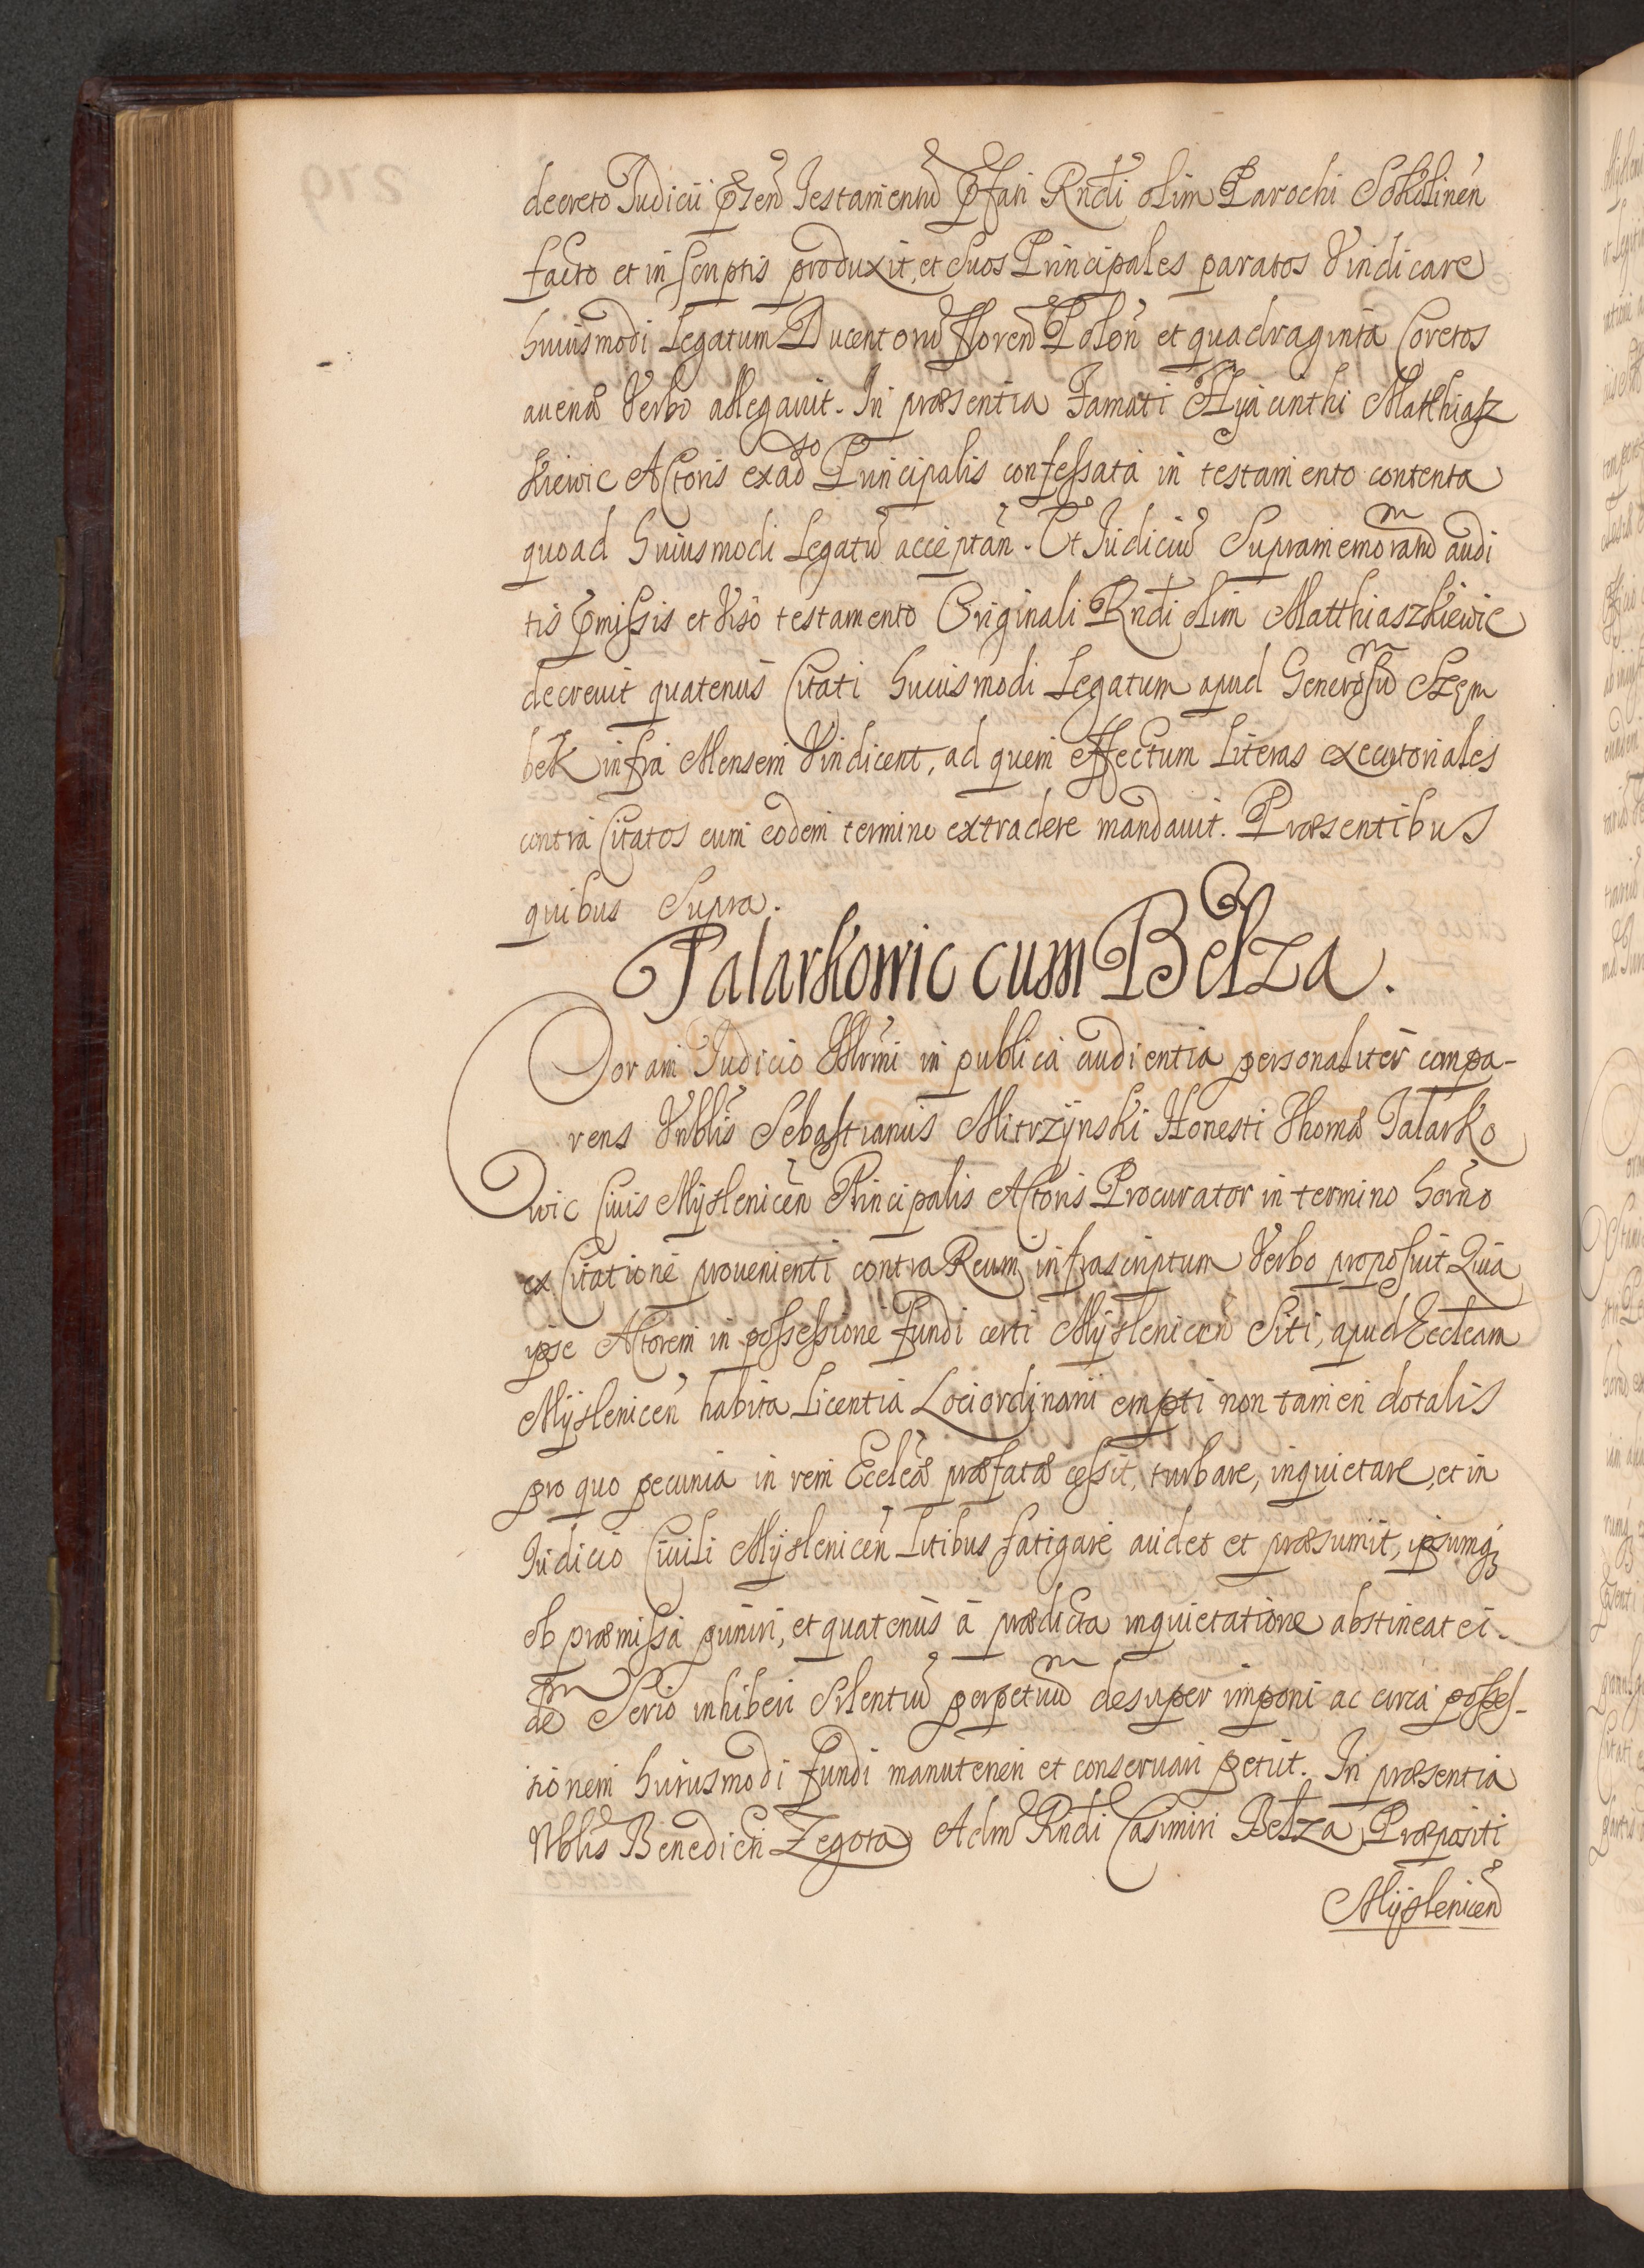 decreto Judicii p̄sen̄ Testamentū p̄fati Rndi olim Parochi Sokolinen̄
facto et in scriptis produxit, et suos Principales paratos Vindicare
huiusmodi Legatum Ducentorū floren̄ Polon̄ et quadraginta Coretos
auenæ Verbo allegauit. In præsentia Famati Hyacinthi Matthiasz
kiewic Actoris ex ad Principalis confessata in testamento contenta
quoad huiusmodi Legatū acceptan̄. Et Judiciū Supramemoratū audi
tis p̄missis et Viso testamento Originali Rndi olim Matthiaszkiewic
decreuit quatenus Citati huiusmodi Legatum apud Generosū Szem
bek infra Mensem Vindicent, ad quem effectum Literas executoriales
contra Citatos cum eodem termino extradere mandauit. Præsentibus
quibus Supra.
Talarkowic cum Bełza.
Coram Judicio Illrmi in publica audientia personaliter compa-
rens Vnblis Sebastianus Mitrzynski Honesti Thomæ Talarko
wic Ciuis Myslenicen̄ Principalis Actoris Procurator in termino horno
ex Citatione prouenienti contra Reum infrascriptum Verbo proposuit Quia
ipse Actorem in possessione fundi certi Myslenicen̄ Siti, apud Eccleam
Myslenicen̄ habita Licentia Loci ordinarii empti non tamen dotalis
pro quo pecunia in rem Eccleæ præfatæ cessit, turbare, inquietare, et in
Judicio Ciuili Myslenicen̄ Litibus fatigare audet et præsumit, ipsumq;
ob præmissa puniri, et quatenus à prædicta inquietatione abstineat ei-
dē Serio inhiberi Silentiū perpetuū desuper imponi ac circa posses-
sionem huiusmodi fundi manuteneri et conseruari petiit. In præsentia
Nblis Benedicti Zegota Admd̄ Rndi Casimiri Bełza Præpositi
Myslenicen̄